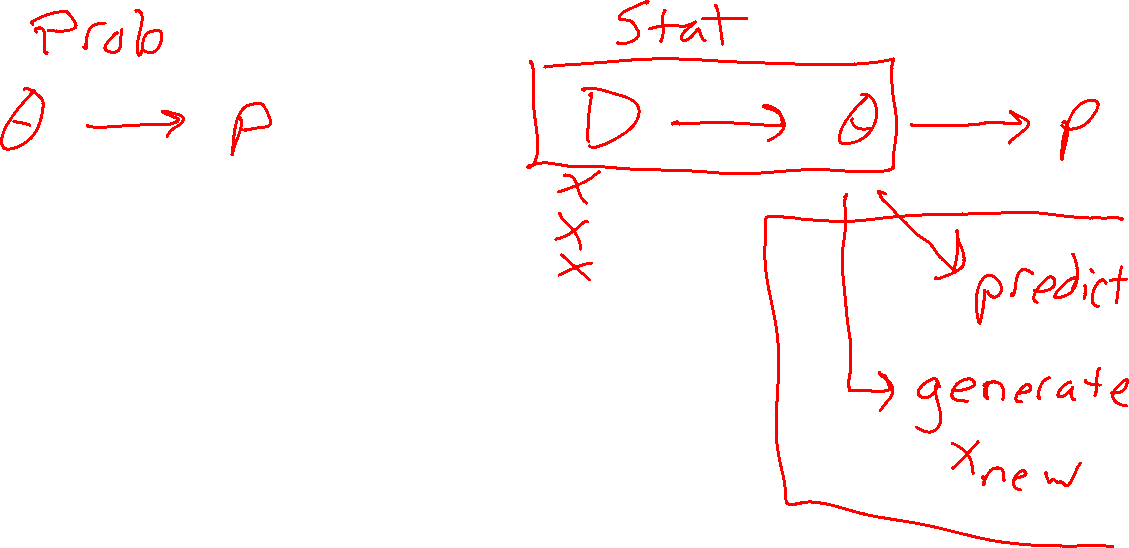 Prob Stat
θ → p D → θ → p
x
x
x
predict
generate
x_new